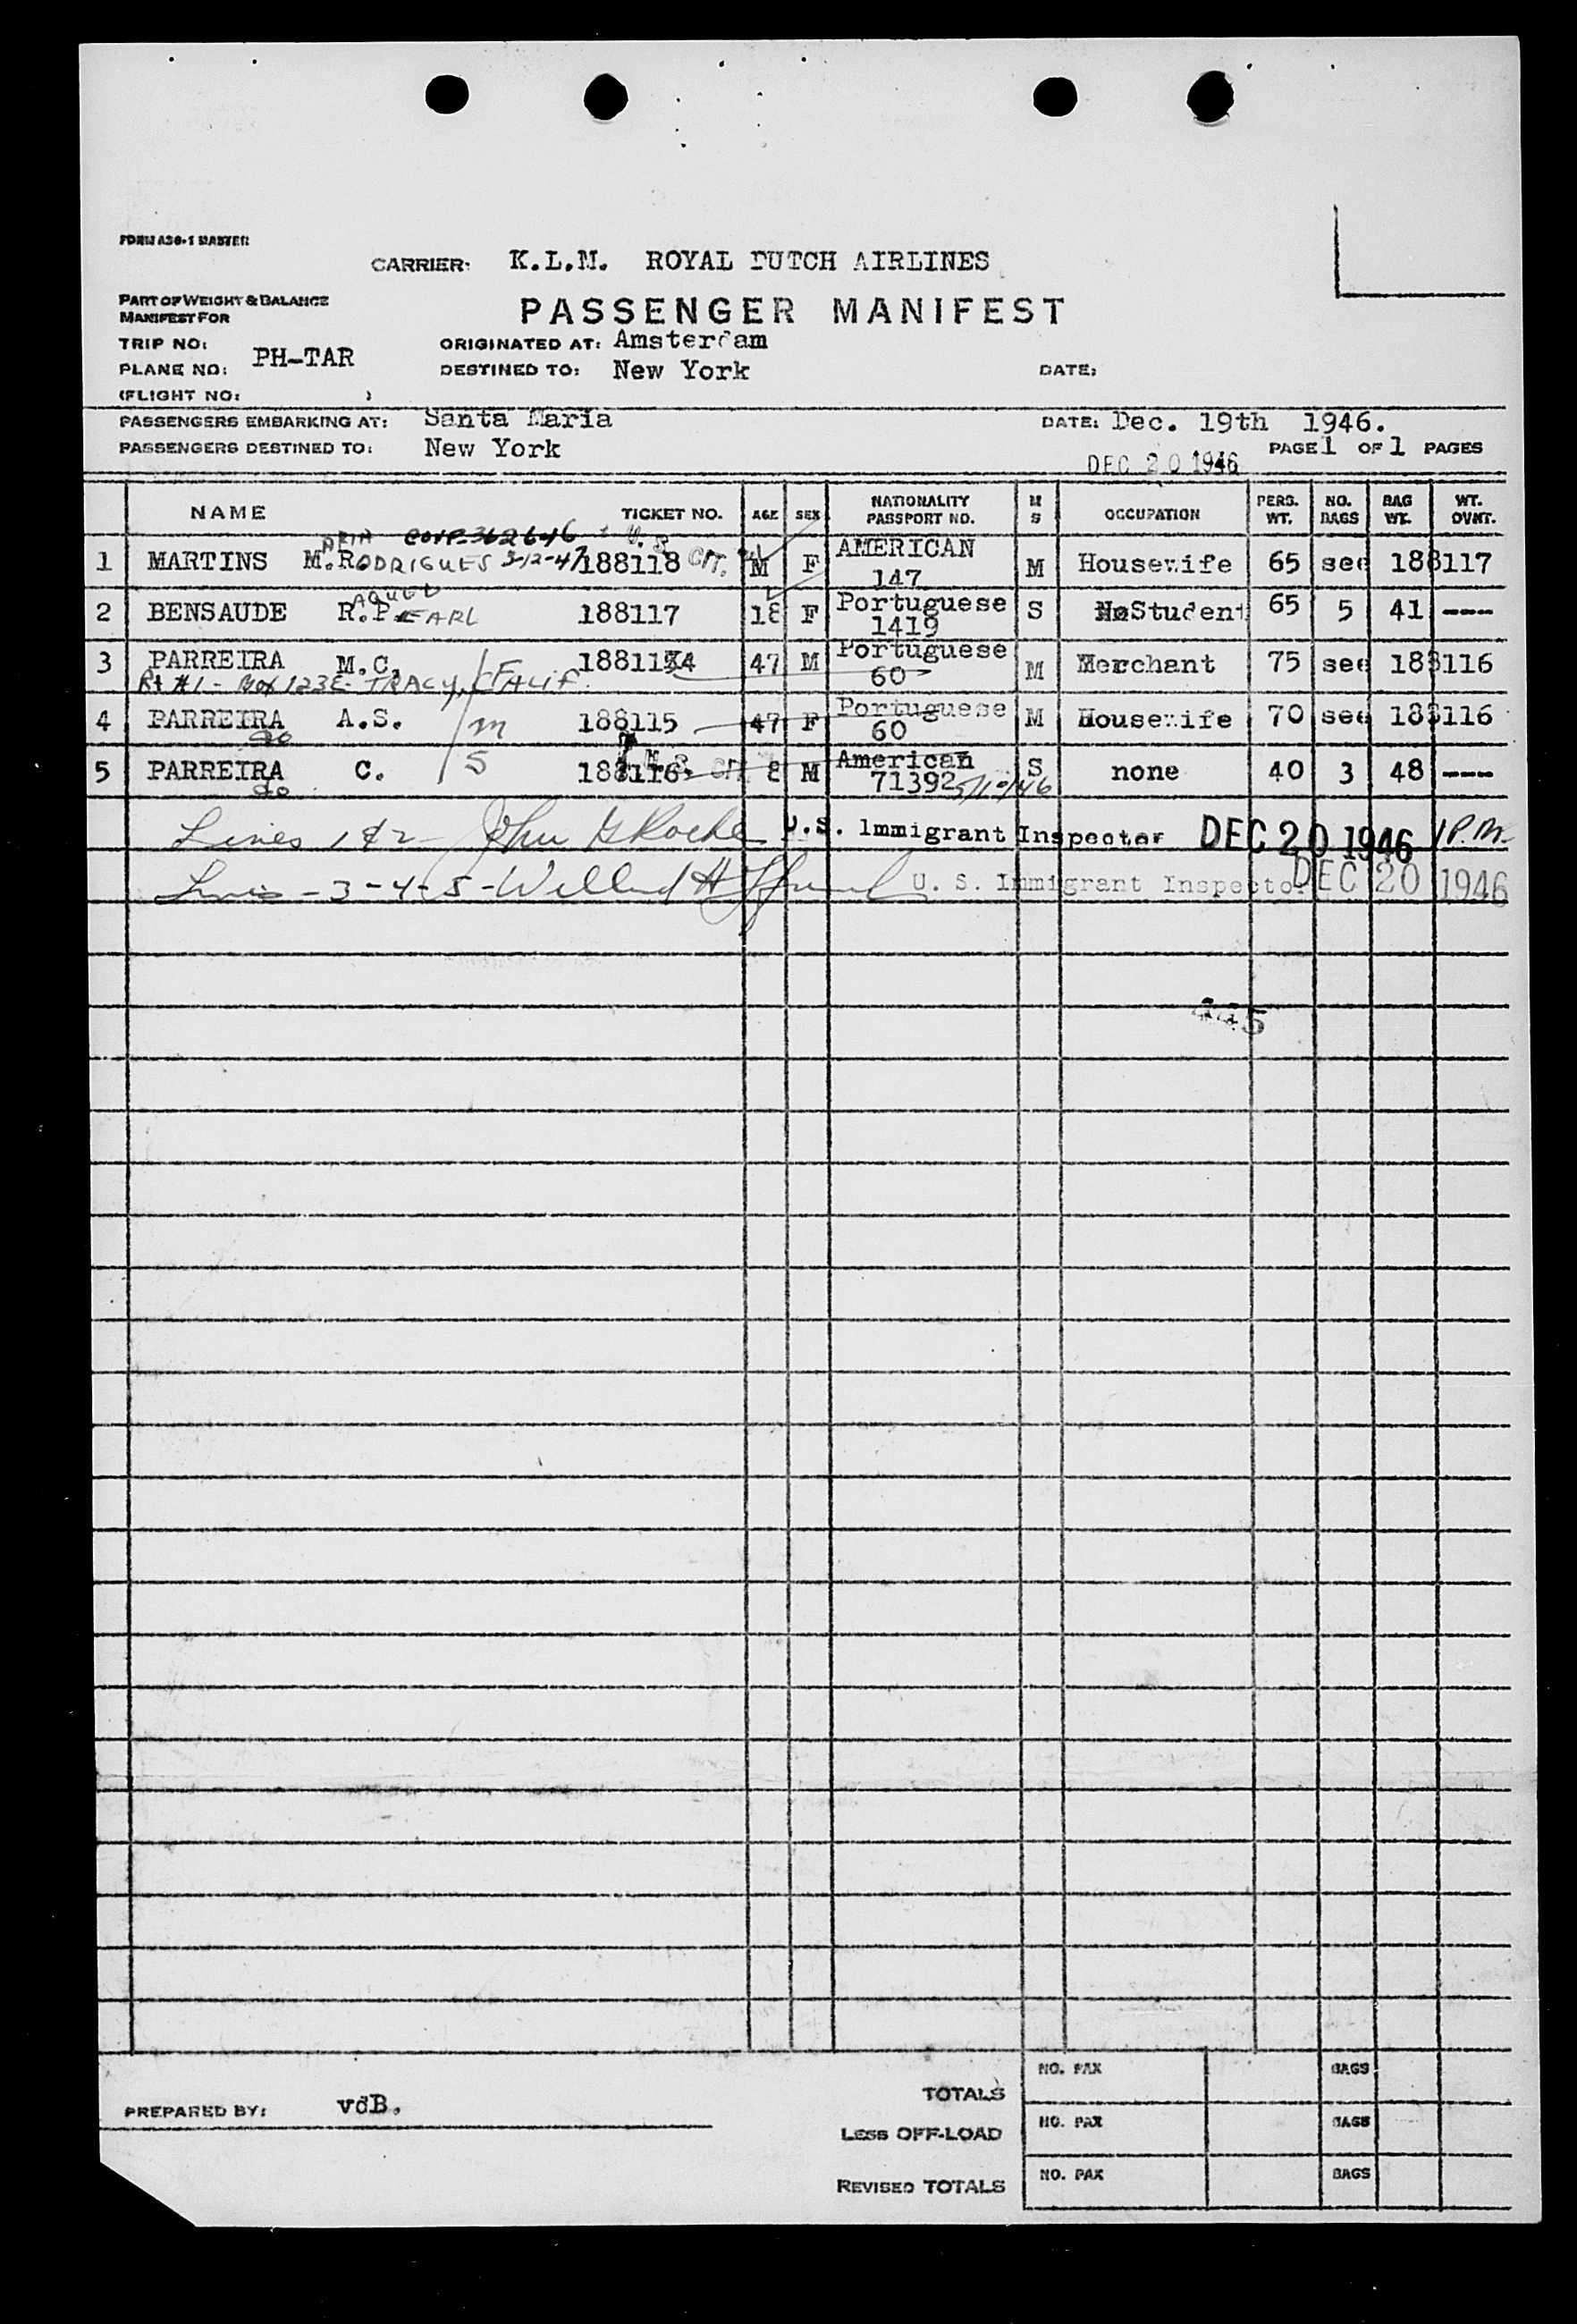 FORM A30-1 MASTER
CARRIER: K.L.M. ROYAL DUTCH AIRLINES
PART OF WEIGHT & BALANCE
MANIFEST FOR
PASSENGER MANIFEST
TRIP NO:
ORIGINATED AT: Amsterdam
PLANE NO: PH-TAR
DESTINED TO: New York
DATE:
(FLIGHT NO: )
PASSENGERS EMBARKING AT: Santa Maria
DATE: Dec. 19th 1946.
PASSENGERS DESTINED TO: New York
DEC 20 1946
PAGE 1 OF 1 PAGES
NAME TICKET NO. AGE SEX NATIONALITY PASSPORT NO. M S OCCUPATION PERS. WT. NO. BAGS BAG WT. WT. OVNT.
ARIA U.S.
1 MARTINS M. RODRIGUES 3-12-47 188118 CIT. M F AMERICAN 147 M Housewife 65 see 188117
AQUEL
2 BENSAUDE R.P. EARL 188117 18 F Portuguese 1419 S Student 65 5 41 ---
3 PARREIRA M.C. 188114 47 M Portuguese 60 M Merchant 75 see 188116
Rt #1 - Box 123E - TRACY, CALIF.
4 PARREIRA A.S. M 188115 47 F Portuguese 60 M Housewife 70 see 188116
do
5 PARREIRA C. S 188116 8 M American 71392 5/10/46 S none 40 3 48 ---
do
Lines 1 & 2 John G Roche U.S. Immigrant Inspector DEC 20 1946 1 P.M.
Lines - 3 - 4 - 5 - Willard H U. S. Immigrant Inspector DEC 20 1946
445
PREPARED BY: vdB.
TOTALS NO. PAX BAGS
LESS OFF-LOAD NO. PAX BAGS
REVISED TOTALS NO. PAX BAGS